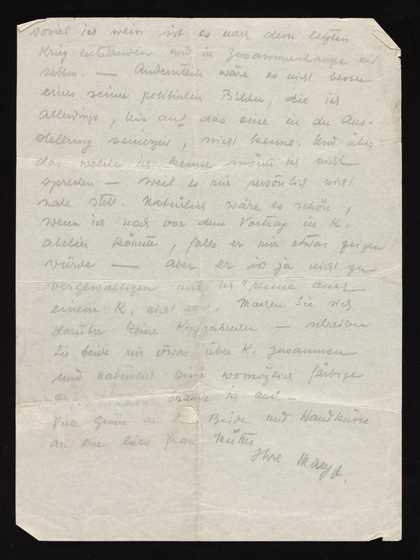 soviel ich weiss ist es nach dem letzten
Krieg entstanden und in Zusammenhange mit
selben. — Andernteils wäre es nicht besser
eines seiner politischen Bilder, die ich
allerdings, bis auf das eine in der Aus-
stellung seinerzeit, nicht kenne. Und über
das welche ich kenne möchte ich nicht
sprechen — weil es mir persönlich nicht
nahe steht. Natürlich wäre es schön,
wenn ich noch vor dem Vortrag in K.
atelier könnte, falls er mir etwas zeigen
würde — aber er ist ja nicht zu
vergewaltigen und ich kenne
einem K. Machen Sie sich
darüber keine Kopfzerbrechen — schreiben
Sie beide mir etwas über K. zusammen
und natürlich eine womöglich farbige
ich auf —
Viele Grüße an Beide und Handküsse
an die liebe Frau Mutter
Ihre